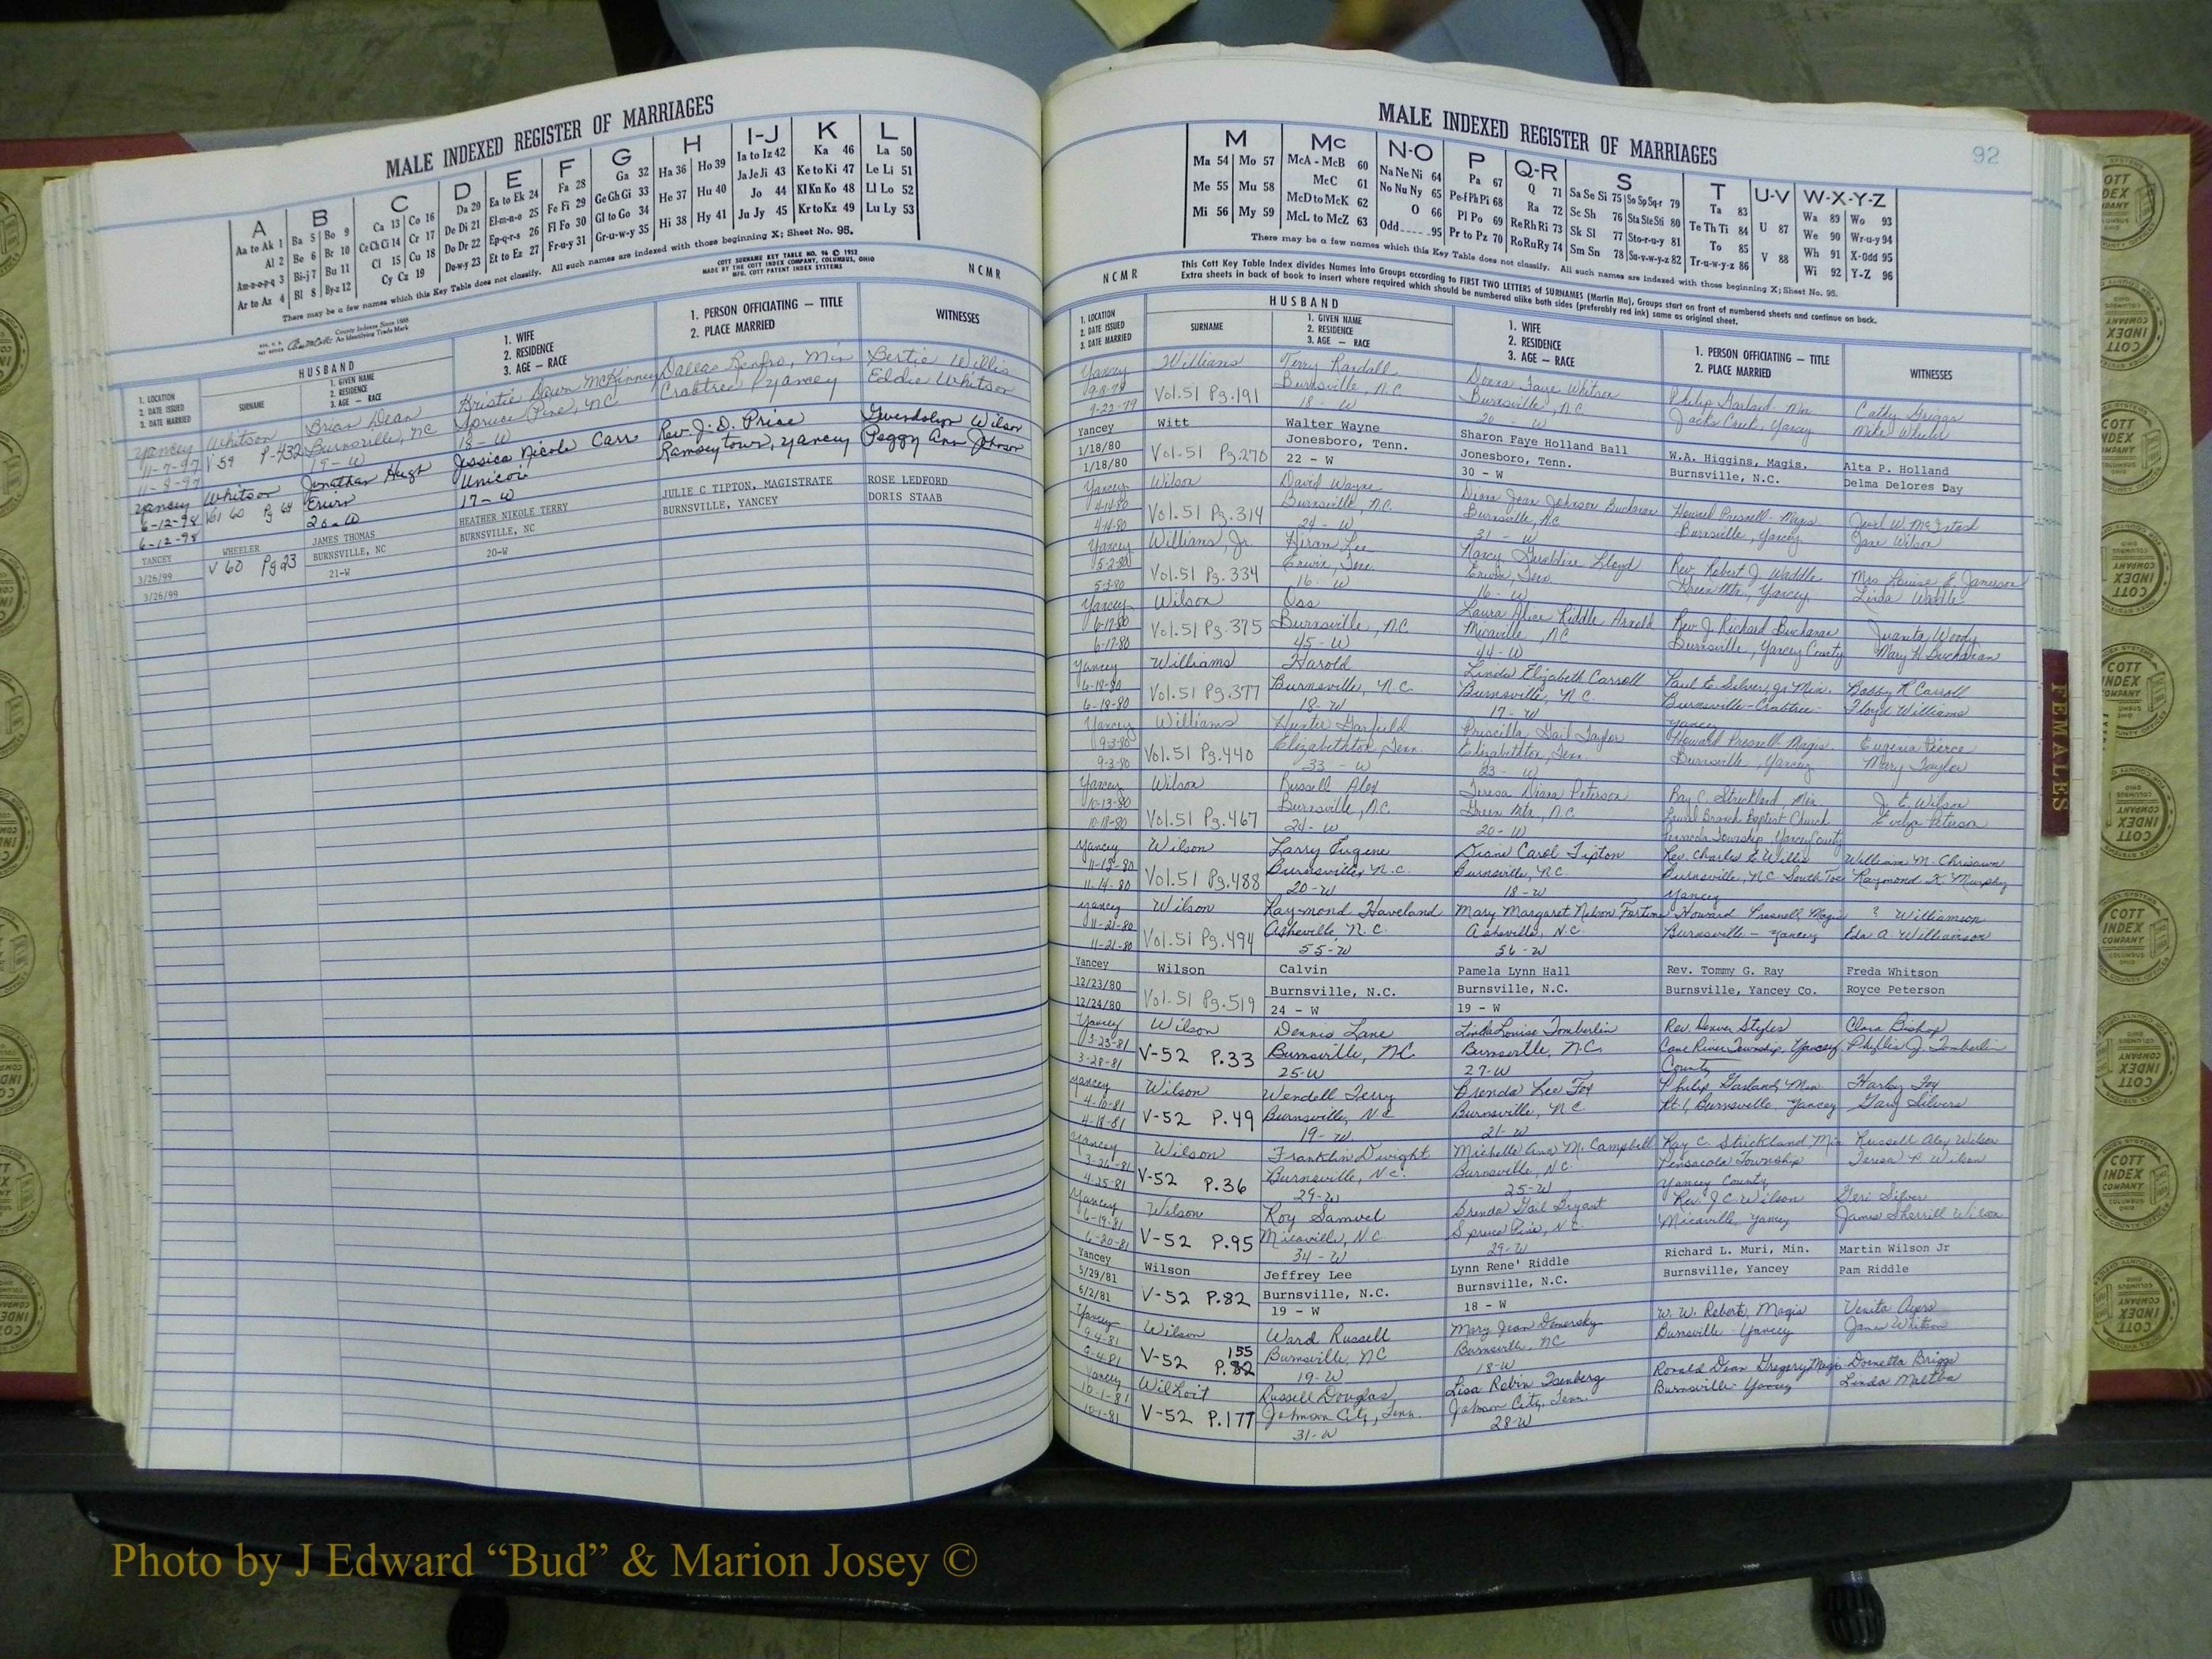 MALE INDEXED REGISTER OF MARRIAGES
A B C D E F G H I-J K L
Aa to Ak 1 Ba 5 Bo 9 Ca 13 Co 16 Da 20 Ea to Ek 24 Fa 28 Ga 32 Ha 36 Ho 39 Ia to Iz 42 Ka 46 La 50
Al 2 Be 6 Br 10 Ce Ch Ci 14 Cr 17 De Di 21 El-m-n-o 25 Fe Fi 29 Ge Gh Gi 33 He 37 Hu 40 Ja Je Ji 43 Ke to Ki 47 Le Li 51
Am-n-o-p-q 3 Bi-j 7 Bu 11 Cl 15 Cu 18 Do Dr 22 Ep-q-r-s 26 Fl Fo 30 Gl to Go 34 Hi 38 Hy 41 Jo 44 Kl Kn Ko 48 Ll Lo 52
Ar to Az 4 Bl 8 By-z 12 Cy Cz 19 Du-w-y 23 Et to Ez 27 Fr-u-y 31 Gr-u-w-y 35 Ju Jy 45 Kr to Kz 49 Lu Ly 53
There may be a few names which this Key Table does not classify. All such names are indexed with those beginning X; Sheet No. 95.
COTT SURNAME KEY TABLE NO. 96 © 1952
MADE BY THE COTT INDEX COMPANY, COLUMBUS, OHIO
MFG. COTT PATENT INDEX SYSTEMS
NCMR
County Indexes Since 1888
An Identifying Trade Mark
1. LOCATION
2. DATE ISSUED
3. DATE MARRIED
HUSBAND
SURNAME
1. GIVEN NAME
2. RESIDENCE
3. AGE — RACE
1. WIFE
2. RESIDENCE
3. AGE — RACE
1. PERSON OFFICIATING — TITLE
2. PLACE MARRIED
WITNESSES
Yancey Whitson Brian Dean Kristie Dawn McKinney Dallas Renfro, Min Bertie Willis
11-7-97 V 59 P-432 Burnsville, NC Spruce Pine, NC Crabtree, Yancey Eddie Whitson
11-8-97 19-W 18-W
Yancey Whitson Jonathan Hugh Jessica Nicole Carr Rev. J. D. Price Gwendolyn Wilson
6-12-98 Vol 60 Pg 64 Erwin Unicoi Ramseytown, Yancey Peggy Ann Johnson
6-12-98 20-W 17-W
YANCEY WHEELER JAMES THOMAS HEATHER NIKOLE TERRY JULIE C TIPTON, MAGISTRATE ROSE LEDFORD
3/26/99 V 60 Pg 23 BURNSVILLE, NC BURNSVILLE, NC BURNSVILLE, YANCEY DORIS STAAB
3/26/99 21-W 20-W
MALE INDEXED REGISTER OF MARRIAGES
92
M Mc N-O P Q-R S T U-V W-X-Y-Z
Ma 54 Mo 57 McA - McB 60 Na Ne Ni 64 Pa 67 Q 71 Sa Se Si 75 So Sp Sq-r 79 Ta 83 U 87 Wa 89 Wo 93
Me 55 Mu 58 McC 61 No Nu Ny 65 Pe-f Ph Pi 68 Ra 72 Sc Sh 76 Sta Ste Sti 80 Te Th Ti 84 We 90 Wr-u-y 94
Mi 56 My 59 McD to McK 62 O 66 Pl Po 69 Re Rh Ri 73 Sk Sl 77 Sto-r-u-y 81 To 85 V 88 Wh 91 X-Odd 95
McL to McZ 63 Odd 95 Pr to Pz 70 Ro Ru Ry 74 Sm Sn 78 Su-v-w-y-z 82 Tr-u-w-y-z 86 Wi 92 Y-Z 96
There may be a few names which this Key Table does not classify. All such names are indexed with those beginning X; Sheet No. 95.
NCMR
This Cott Key Table Index divides Names into Groups according to FIRST TWO LETTERS of SURNAMES (Martin Ma), Groups start on front of numbered sheets and continue on back.
Extra sheets in back of book to insert where required which should be numbered alike both sides (preferably red ink) same as original sheet.
1. LOCATION
2. DATE ISSUED
3. DATE MARRIED
HUSBAND
SURNAME
1. GIVEN NAME
2. RESIDENCE
3. AGE — RACE
1. WIFE
2. RESIDENCE
3. AGE — RACE
1. PERSON OFFICIATING — TITLE
2. PLACE MARRIED
WITNESSES
Yancey Williams Terry Randall Donna Faye Whitson Philip Garland Min. Cathy Griggs
9-8-79 Vol.51 Pg.191 Burnsville, N.C. Burnsville, N.C. Jacks Creek, Yancey Mike Wheeler
9-22-79 18 - W 20 - W
Yancey Witt Walter Wayne Sharon Faye Holland Ball W.A. Higgins, Magis. Alta P. Holland
1/18/80 Vol.51 Pg.270 Jonesboro, Tenn. Jonesboro, Tenn. Burnsville, N.C. Delma Delores Day
1/18/80 22 - W 30 - W
Yancey Wilson David Wayne Diana Jean Johnson Buchanan Howard Presnell - Magis.
4-14-80 Vol.51 Pg.314 Burnsville, N.C. Burnsville, N.C. Burnsville, Yancey Jane Wilson
4-14-80 24 - W 31 - W
Yancey Williams, Jr. Hiram Lee Nancy Geraldine Lloyd Rev. Robert J. Waddle Mrs. Louise E. Jamerson
5-2-80 Vol.51 Pg.334 Erwin, Tenn. Erwin, Tenn. Green Mtn., Yancey Linda Waddle
5-3-80 16 - W 16 - W
Yancey Wilson Oss Laura Alice Riddle Arnold Rev. J. Richard Buchanan Juanita Woody
6-17-80 Vol.51 Pg.375 Burnsville, N.C. Micaville, N.C. Burnsville, Yancey County Mary H. Buchanan
6-17-80 45 - W 44 - W
Yancey Williams Harold Linda Elizabeth Carroll Paul E. Silver, Jr. Min. Bobby R. Carroll
6-18-80 Vol.51 Pg.377 Burnsville, N.C. Burnsville, N.C. Burnsville - Crabtree - Floyd Williams
6-18-80 18-W 17-W Yancey
Yancey Williams Hunter Garfield Priscilla Gail Taylor Howard Presnell - Magis. Eugenia Pierce
9-3-80 Vol.51 Pg.440 Elizabethton, Tenn. Elizabethton, Tenn. Burnsville, Yancey Mary Taylor
9-3-80 33 - W 23 - W
Yancey Wilson Russell Alex Teresa Diana Peterson Ray C. Strickland, Min. J. E. Wilson
10-13-80 Vol.51 Pg.467 Burnsville, N.C. Green Mtn., N.C. Laurel Branch Baptist Church Evelyn Peterson
10-18-80 24 - W 20 - W Pensacola Township Yancey County
Yancey Wilson Larry Eugene Diane Carol Tipton Rev. Charles E. Willis William M. Chrisawn
11-13-80 Vol.51 Pg.488 Burnsville, N.C. Burnsville, N.C. Burnsville, N.C. South Toe Raymond K. Murphy
11-14-80 20-W 18-W Yancey
Yancey Wilson Raymond Haveland Mary Margaret Nelson Fortune Howard Presnell, Magis ? Williamson
11-21-80 Vol.51 Pg.494 Asheville N.C. Asheville, N.C. Burnsville - Yancey Eda A. Williamson
11-21-80 55-W 56-W
Yancey Wilson Calvin Pamela Lynn Hall Rev. Tommy G. Ray Freda Whitson
12/23/80 Vol.51 Pg.519 Burnsville, N.C. Burnsville, N.C. Burnsville, Yancey Co. Royce Peterson
12/24/80 24 - W 19 - W
Yancey Wilson Dennis Lane Linda Louise Tomberlin Rev. Denver Styles Clara Bishop
3-23-81 V-52 P.33 Burnsville, N.C. Burnsville, N.C. Cane River Township, Yancey Phyllis J. Tomberlin
3-28-81 25-W 27-W County
Yancey Wilson Wendell Terry Brenda Lee Fox Philip Garland, Min. Harley Fox
4-10-81 V-52 P.49 Burnsville, N.C. Burnsville, N.C. Rt 1, Burnsville, Yancey Gary Silvers
4-18-81 19-W 21-W
Yancey Wilson Franklin Dwight Michelle Ann McCampbell Ray C. Strickland Min Russell Alex Wilson
3-26-81 V-52 P.36 Burnsville, N.C. Burnsville, N.C. Pensacola Township Teresa P. Wilson
4-25-81 29-W 25-W Yancey County
Yancey Wilson Roy Samuel Brenda Gail Bryant Rev. J.C. Wilson Geri Silver
6-19-81 V-52 P.95 Micaville, N.C. Spruce Pine, N.C. Micaville, Yancey James Sherrill Wilson
6-20-81 34-W 29-W
Yancey Wilson Jeffrey Lee Lynn Rene' Riddle Richard L. Muri, Min. Martin Wilson Jr
5/29/81 V-52 P.82 Burnsville, N.C. Burnsville, N.C. Burnsville, Yancey Pam Riddle
6/2/81 19 - W 18 - W
Yancey Wilson Ward Russell Mary Jean W. W. Roberts, Magis Venita Ayers
9-4-81 V-52 155 P.82 Burnsville, NC Burnsville, NC Burnsville Yancey Janes Whitson
9-4-81 19-W 18-W
Yancey Wilhoit Russell Douglas Lisa Robin Isenberg Ronald Dean Gregory Magis Dornetta Briggs
10-1-81 V-52 P.177 Johnson City, Tenn. Johnson City, Tenn. Burnsville-Yancey Linda Maltba
10-1-81 31-W 28-W
FEMALES
COTT INDEX COMPANY COLUMBUS OHIO
Photo by J Edward “Bud” & Marion Josey ©